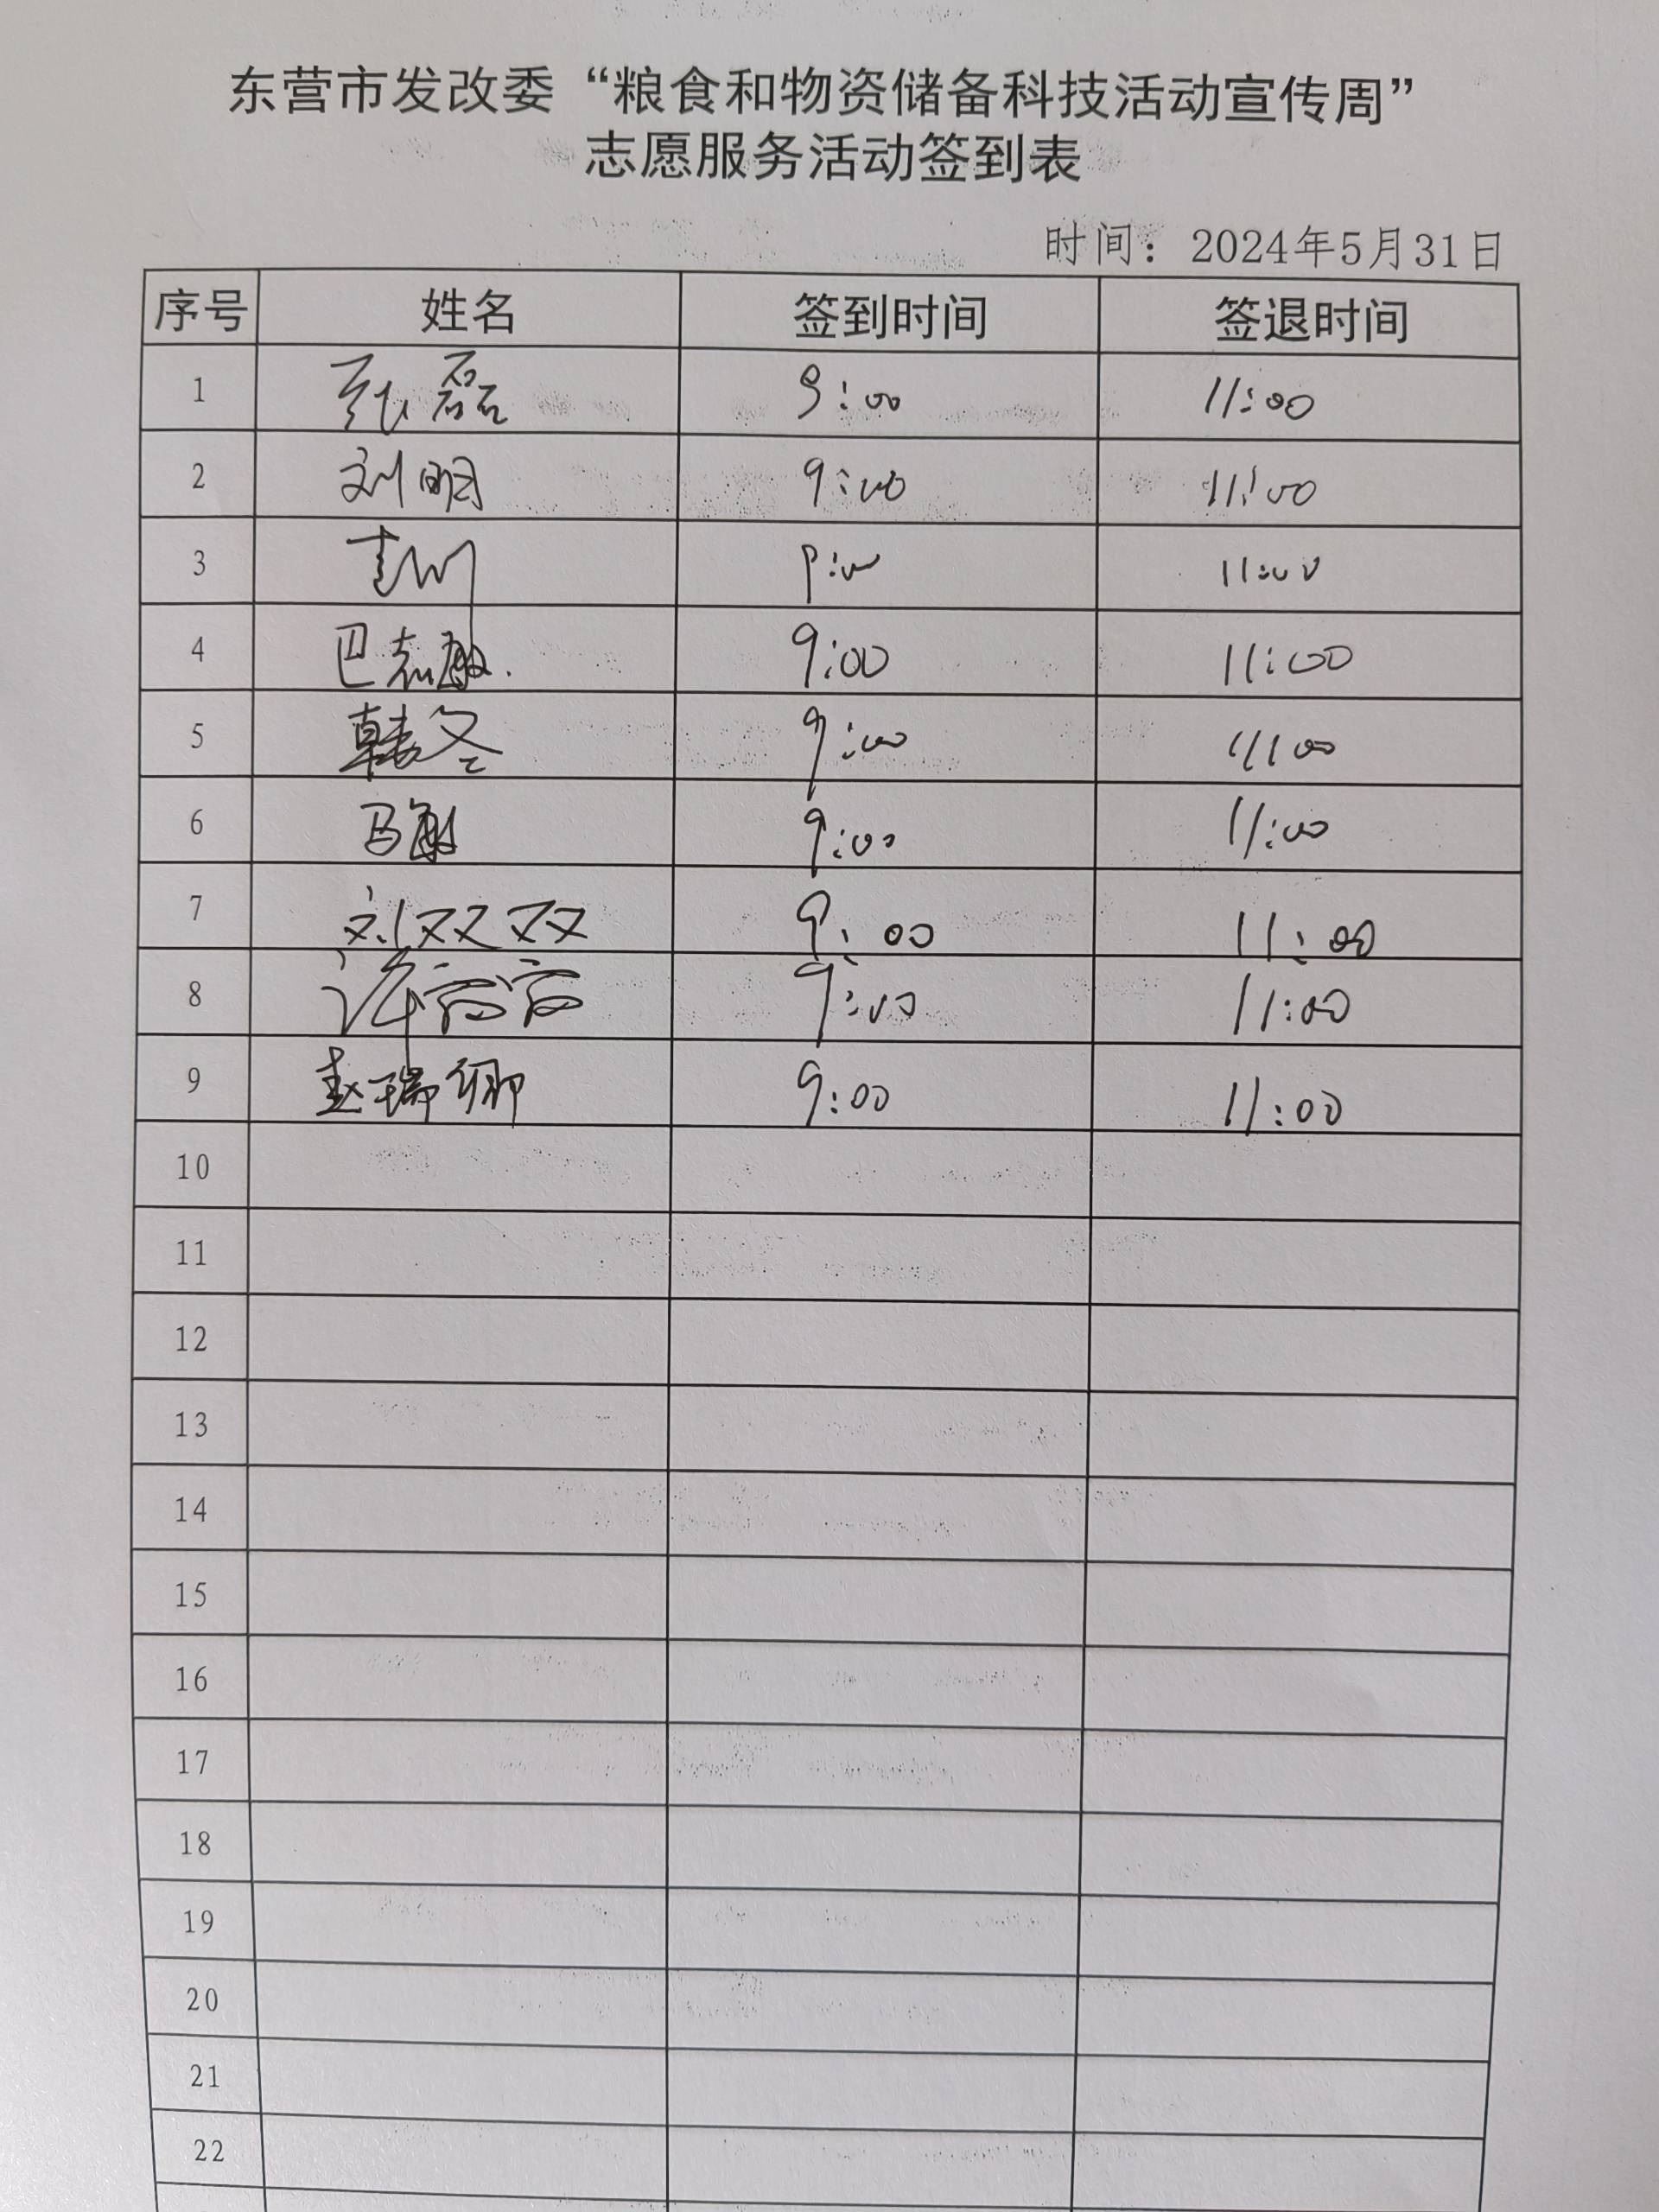 东营市发改委“粮食和物资储备科技活动宣传周”
志愿服务活动签到表
时间：2024年5月31日
序号 姓名 签到时间 签退时间
1 张磊 9:00 11:00
2 刘明 9:00 11:00
3 9:00 11:00
4 巴志敏 9:00 11:00
5 韩冬 9:00 11:00
6 马敏 9:00 11:00
7 刘双双 9:00 11:00
8 许高高 9:00 11:00
9 赵瑞卿 9:00 11:00
10
11
12
13
14
15
16
17
18
19
20
21
22